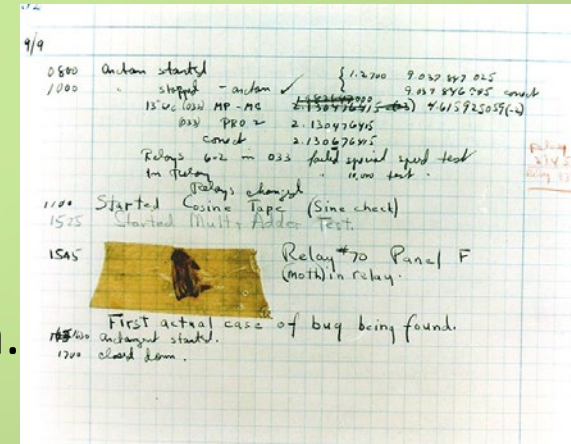 9/9
0800 Antan started
1000 " stopped - antan ✓ { 1.2700 9.037 847 025
9.037 846 995 correct
13"UC (033) MP-MC 2.130476415 (-3) 4.615925059(-2)
(033) PRO 2 2.130476415
correct 2.130676415
Relays 6-2 in 033 failed special speed test
in Relay " 10,000 test.
Relay
2145
Relays changed
1100 Started Cosine Tape (Sine check)
1525 Started Mult+Adder Test.
1545 Relay #70 Panel F
(moth) in relay.
First actual case of bug being found.
1630 antangent started.
1700 closed down.